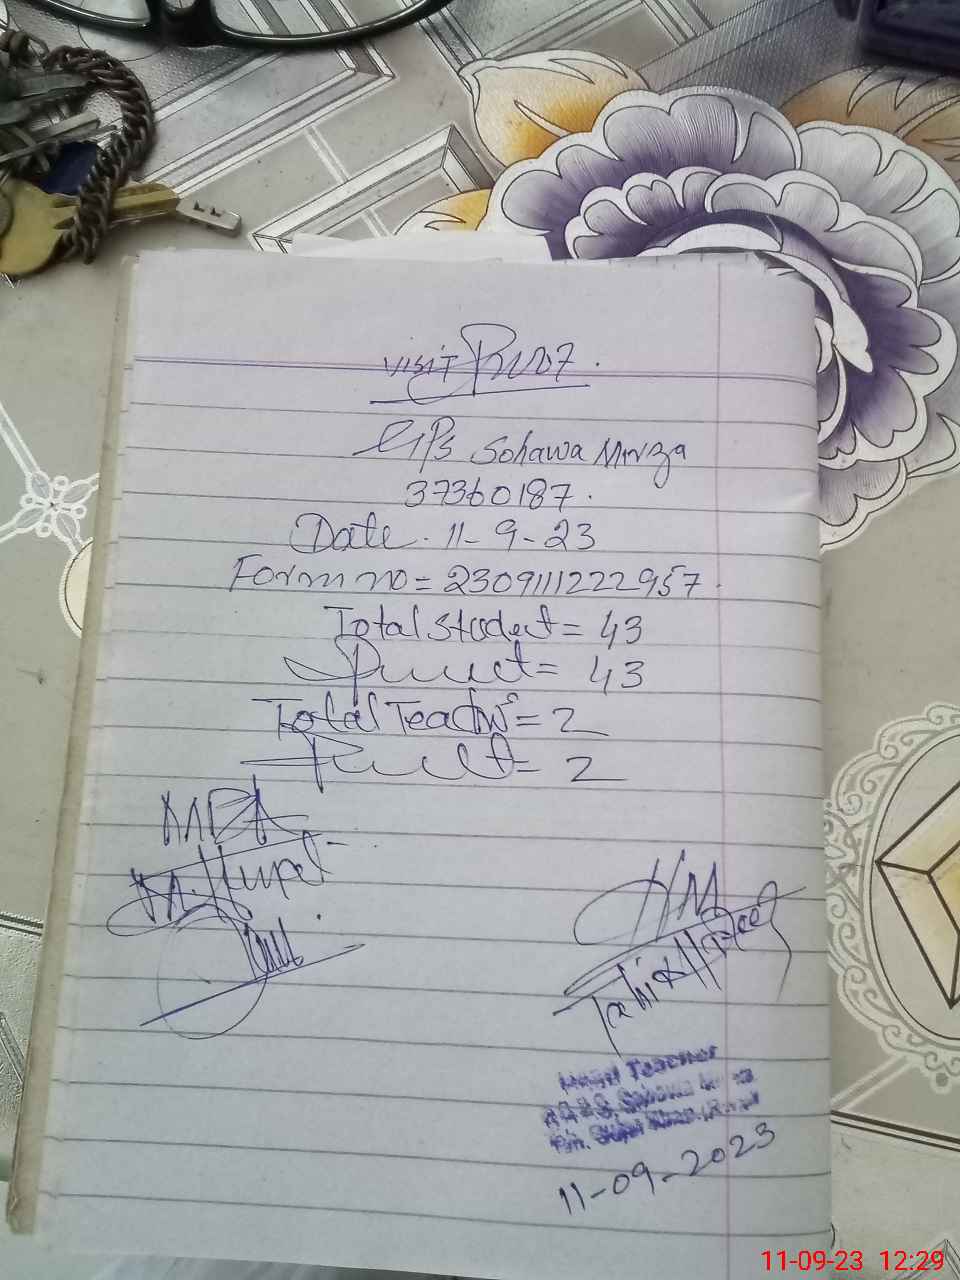 VISIT Proof.
G/Ps Sohawa Mirza
37360187.
Date. 11-9-23
Form no = 2309111222957.
Total student = 43
Present = 43
Total Teacher = 2
Present = 2
MEA
HM
Head Teacher
11-09-2023
11-09-23 12:29